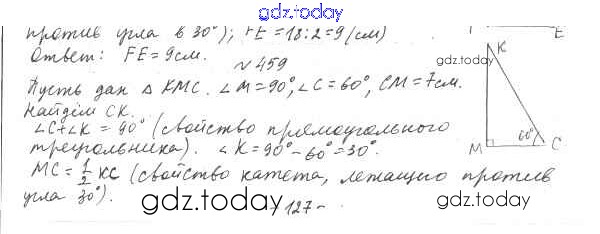 gdz.today
против угла в 30°); FE = 18:2 = 9 (см)
Ответ: FE = 9 см.
E
gdz.today
N 459
K
Пусть дан △ KMC. ∠M = 90°, ∠C = 60°, CM = 7 см.
Найдём CK.
∠C + ∠K = 90° (свойство прямоугольного
треугольника). ∠K = 90° - 60° = 30°.
60°
M
C
MC = 1/2 KC (свойство катета, лежащего против
угла 30°).
gdz.today
gdz.today
- 127 -